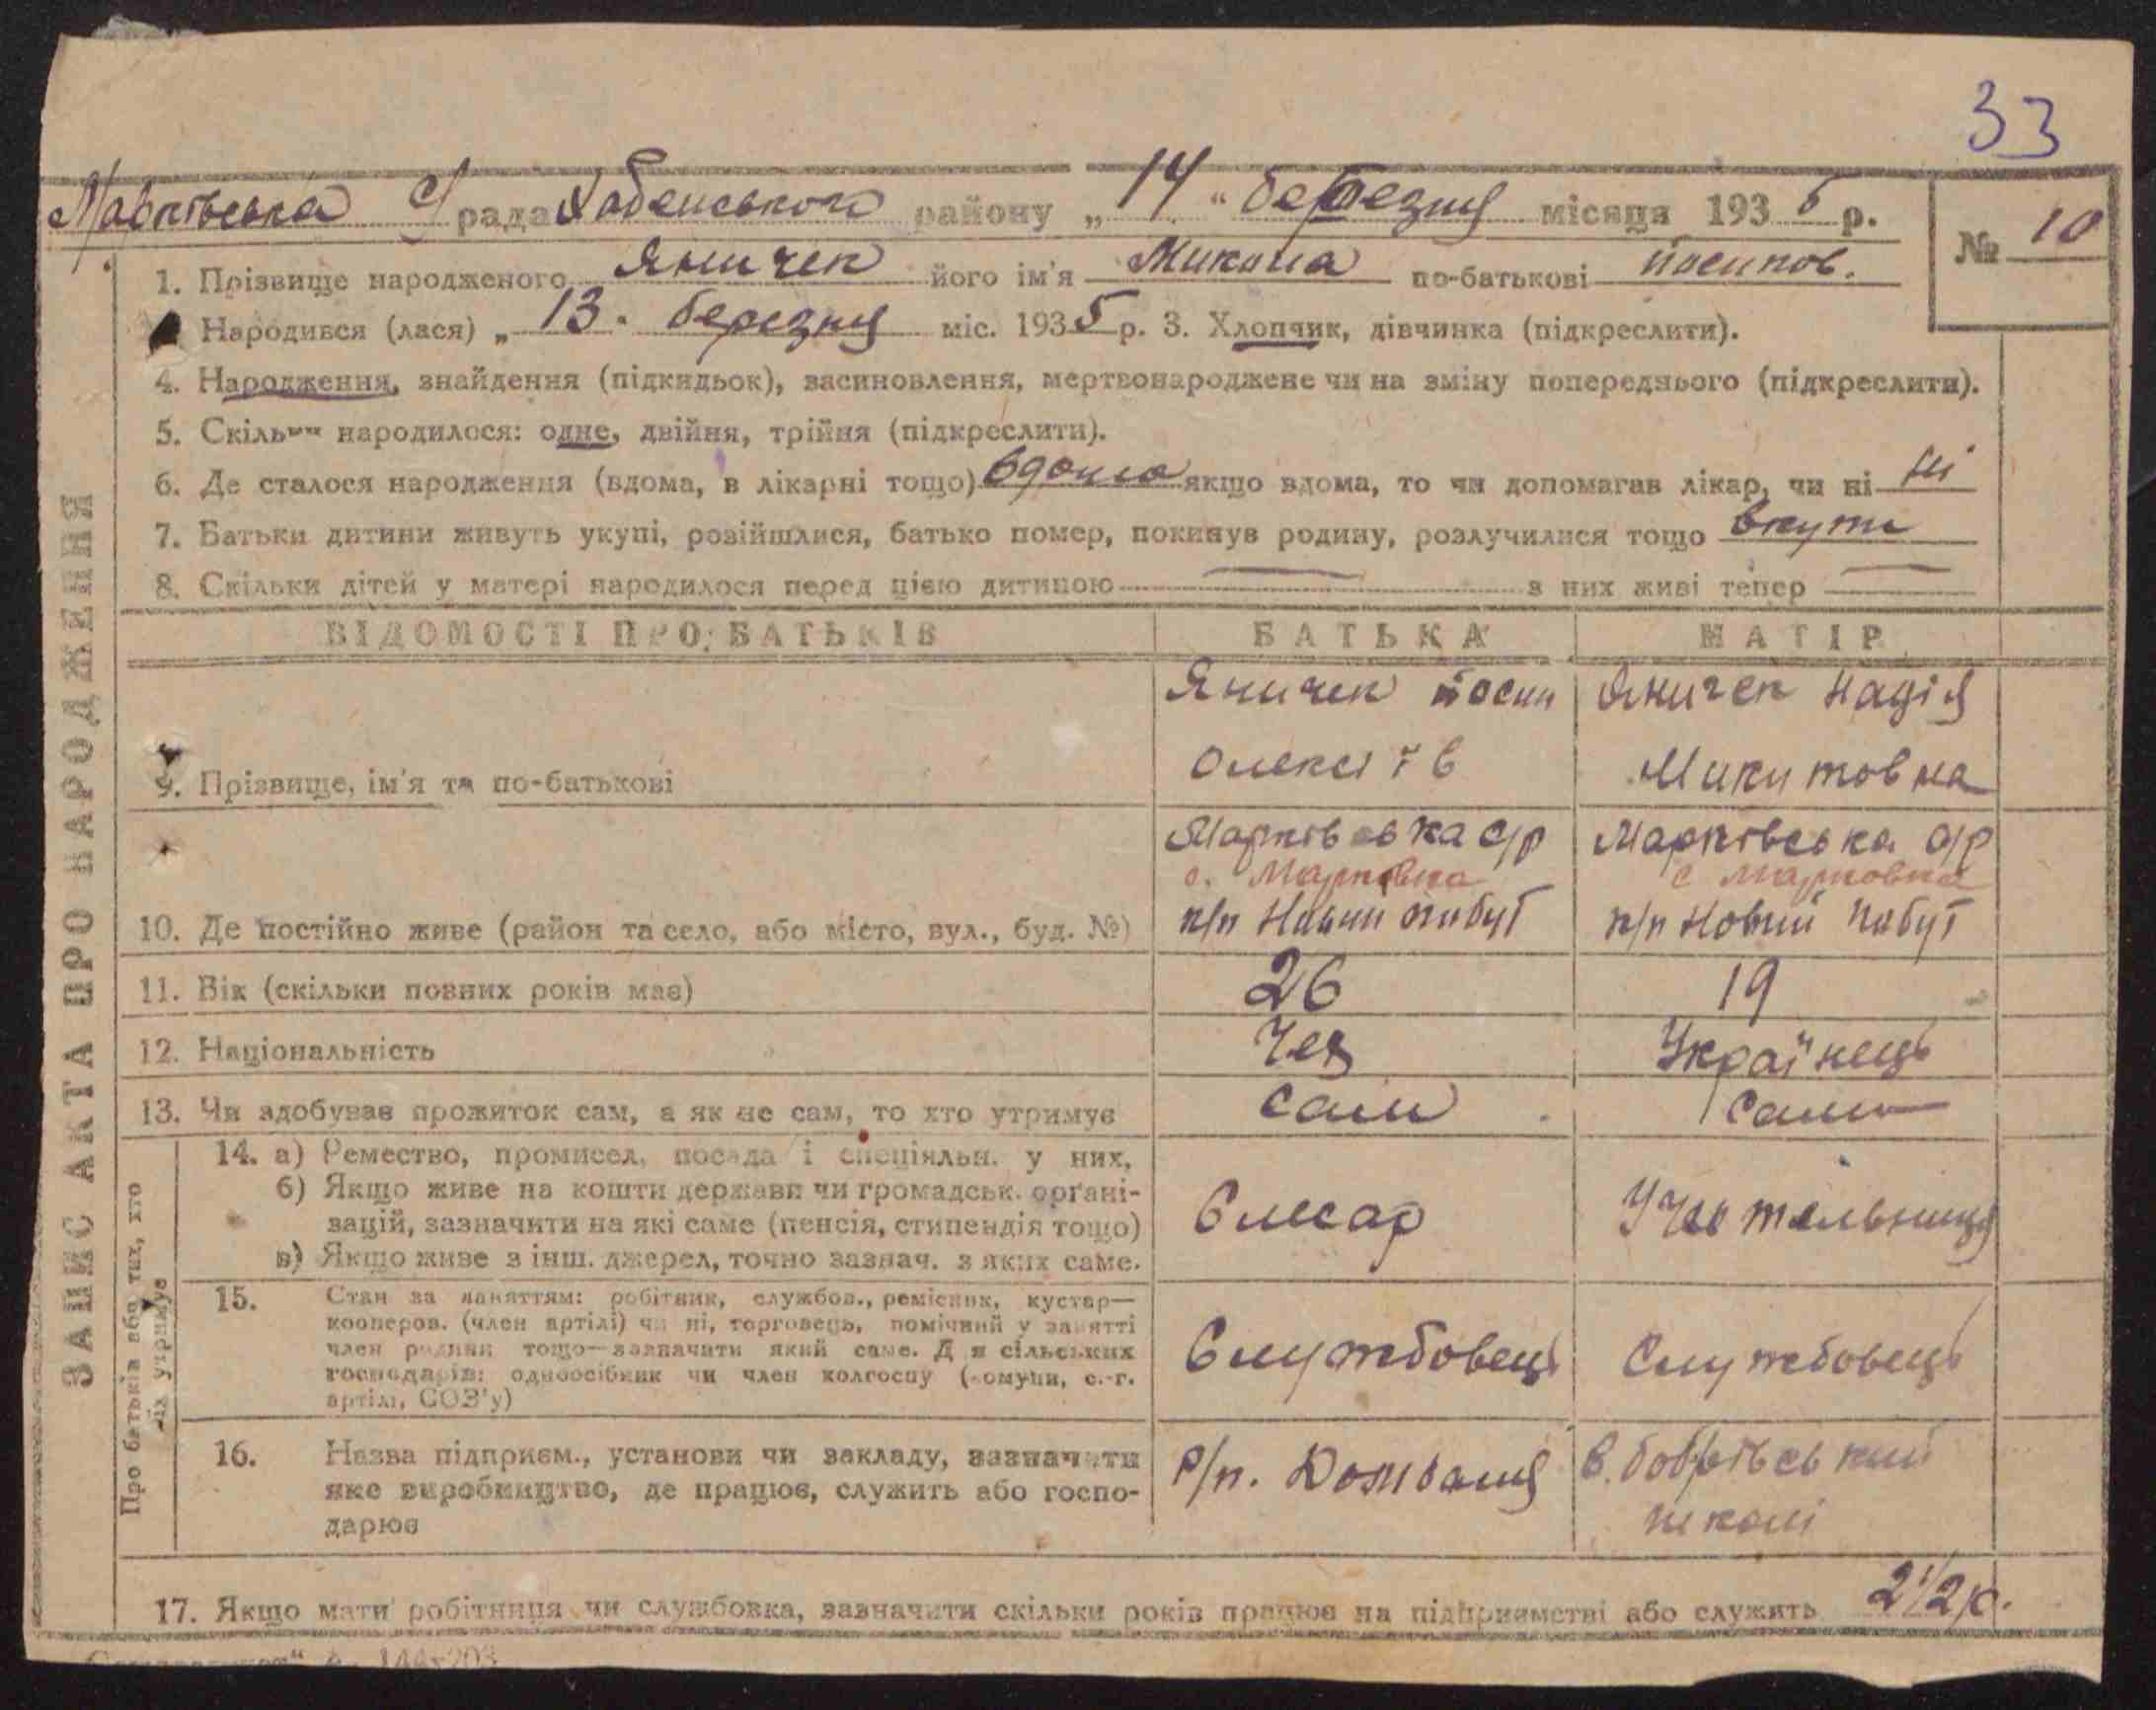 33
Марківська с/рада Хабенського району „14“ березня місяця 1935 р.
№ 10
1. Прізвище народженого Яничек його ім'я Микола по-батькові Йосипов.
Народився (лася) „13. березня міс. 1935 р. 3. Хлопчик, дівчинка (підкреслити).
4. Народження, знайдення (підкидьок), засиновлення, мертвонароджене чи на зміну попереднього (підкреслити).
5. Скільки народилося: одне, двійня, трійня (підкреслити).
6. Де сталося народження (вдома, в лікарні тощо) вдома якщо вдома, то чи допомагав лікар, чи ні ні
7. Батьки дитини живуть укупі, розійшлися, батько помер, покинув родину, розлучилися тощо вкупи
8. Скільки дітей у матері народилося перед цією дитиною — з них живі тепер —
ВІДОМОСТІ ПРО БАТЬКІВ БАТЬКА МАТІР
Яничек Йосип Яничек Надія
Олексіїв Микитовна
9. Прізвище, ім'я та по-батькові
Марківська с/р Марківська с/р
с. Марковка с Марковка
10. Де постійно живе (район та село, або місто, вул., буд. №) к/п Новий побут к/п Новий Побут
11. Вік (скільки повних років має) 26 19
12. Національність Чех Українець
13. Чи здобував прожиток сам, а як не сам, то хто утримує сам сама
14. а) Ремество, промисел, посада і спеціяльн. у них,
б) Якщо живе на кошти держави чи громадськ. органі-
зацій, зазначити на які саме (пенсія, стипендія тощо) Слесар Учительниця
в) Якщо живе з інш. джерел, точно зазнач. з яких саме.
15. Стан за заняттям: робітник, службов., ремісник, кустар—
кооперов. (член артілі) чи ні, торговець, помічний у занятті
член родини тощо—зазначати який саме. Для сільських
господарів: одноосібник чи член колгоспу (комуни, с.-г.
артілі, СОЗ'у)
Службовець Службовець
16. Назва підприєм., установи чи закладу, зазначити
яке виробництво, де працює, служить або госпо-
дарює
р/п. В. Бобрівський
школі
17. Якщо мати робітниця чи службовка, зазначити скільки років працює на підприємстві або служить 2 1/2 р.
ЗАПИС АКТА ПРО НАРОДЖЕННЯ
Про батьків або тих, хто
їх утримує